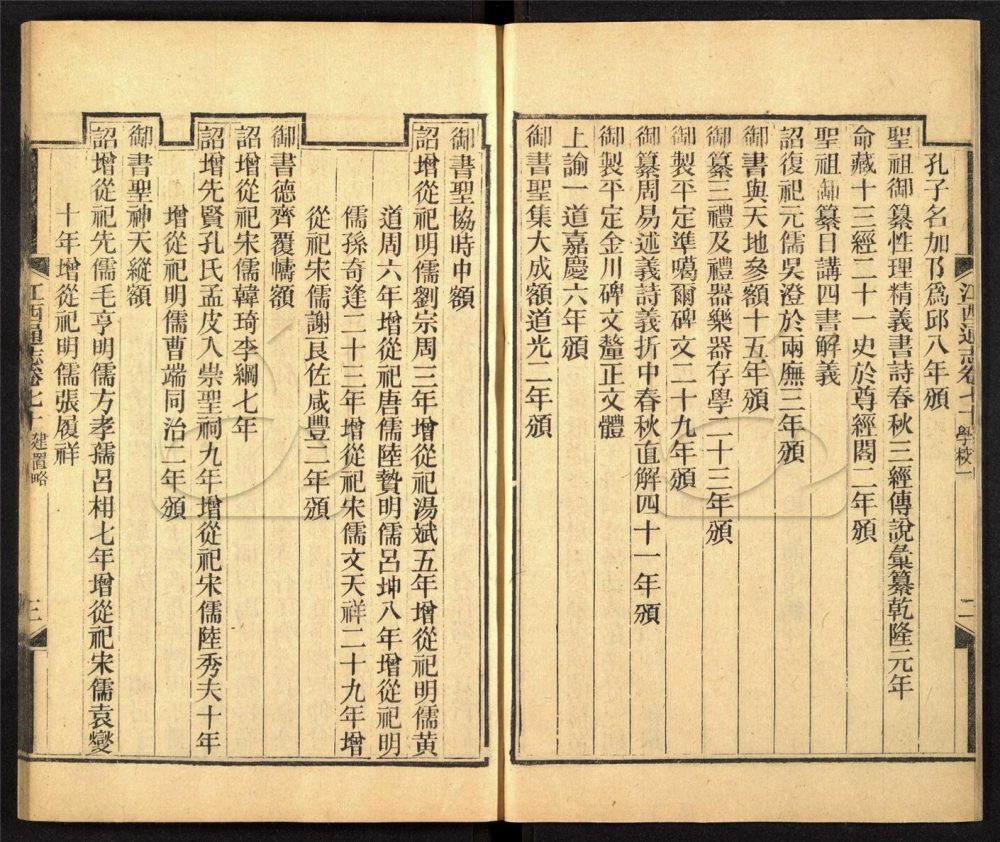 孔子名加阝爲邱八年頒
聖祖御纂性理精義書詩春秋三經傳說彙纂乾隆元年
命藏十三經二十一史於尊經閣二年頒
聖祖御纂日講四書解義
詔復祀元儒吳澄於兩廡三年頒
御書與天地參額十五年頒
御纂三禮及禮器樂器存學二十三年頒
御製平定準噶爾碑文二十九年頒
御纂周易述義詩義折中春秋直解四十一年頒
御製平定金川碑文釐正文體
上諭一道嘉慶六年頒
御書聖集大成額道光二年頒
江西通志卷七十 學校一 二
御書聖協時中額
詔增從祀明儒劉宗周三年增從祀湯斌五年增從祀明儒黃
道周六年增從祀唐儒陸贄明儒呂坤八年增從祀明
儒孫奇逢二十三年增從祀宋儒文天祥二十九年增
從祀宋儒謝良佐咸豐二年頒
御書德齊覆幬額
詔增從祀宋儒韓琦李綱七年
詔增先賢孔氏孟皮入崇聖祠九年增從祀宋儒陸秀夫十年
增從祀明儒曹端同治二年頒
御書聖神天縱額
詔增從祀先儒毛亨明儒方孝孺呂柟七年增從祀宋儒袁燮
十年增從祀明儒張履祥
江西通志卷七十 建置略 三